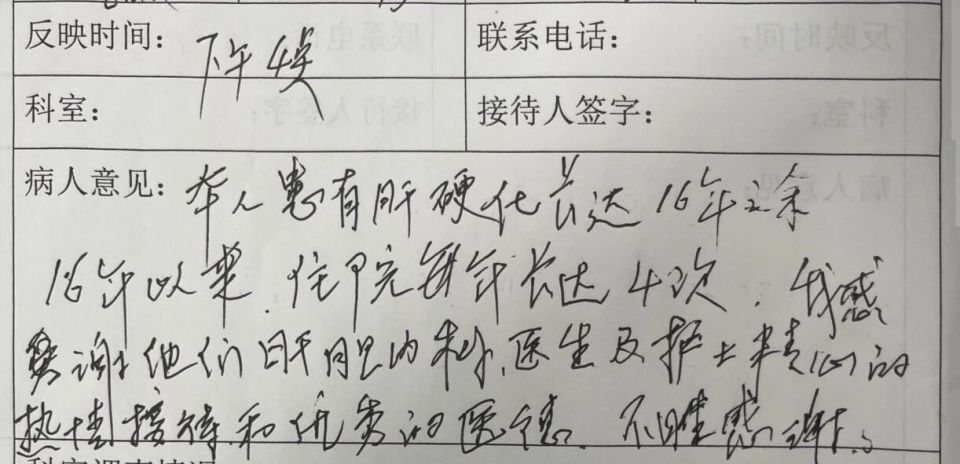 反映时间：下午4点 联系电话：
科室： 接待人签字：
病人意见：本人患有肝硬化长达16年之余
16年以来.住甲完每年长达4次.我感
谢他们肝胆内科.医生及护士精心的
热情接待和优质的医德.不胜感谢。